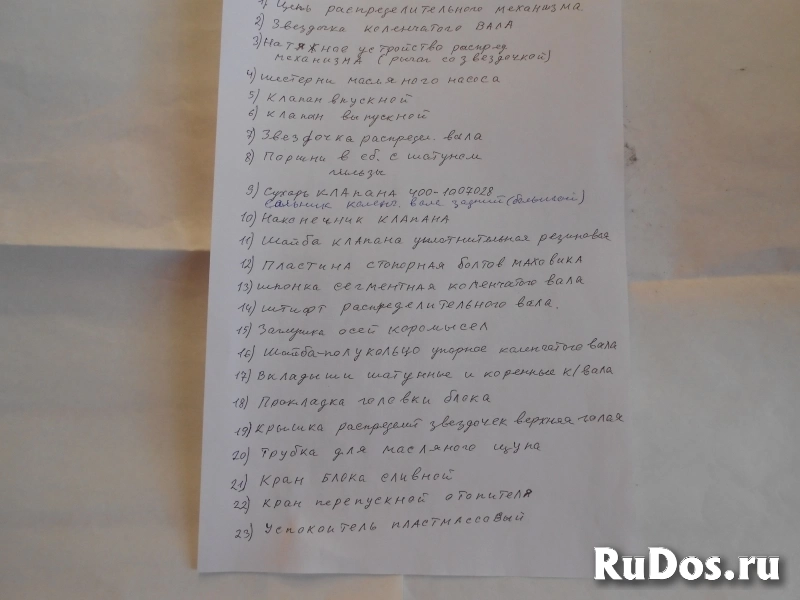 1) Цепь распределительного механизма
2) Звездочка коленчатого вала
3) Натяжное устройство распред
механизма (рычаг со звездочкой)
4) шестерни масляного насоса
5) Клапан впускной
6) клапан выпускной
7) Звездочка распредел. вала
8) Поршни в сб. с шатуном
гильзы
9) Сухарь клапана 400-1007028
сальник колен. вала задний (большой)
10) Наконечник клапана
11) Шайба клапана уплотнительная резиновая
12) Пластина стопорная болтов маховика
13) шпонка сегментная коленчатого вала
14) штифт распределительного вала.
15) Заглушка осей коромысел
16) Шайба-полукольцо упорное коленчатого вала
17) Вкладыши шатунные и коренные к/вала
18) Прокладка головки блока
19) Крышка распределит звездочек верхняя голая
20) трубка для масляного щупа
21) Кран блока сливной
22) кран перепускной отопителя
23) Успокоитель пластмассовый
RuDos.ru